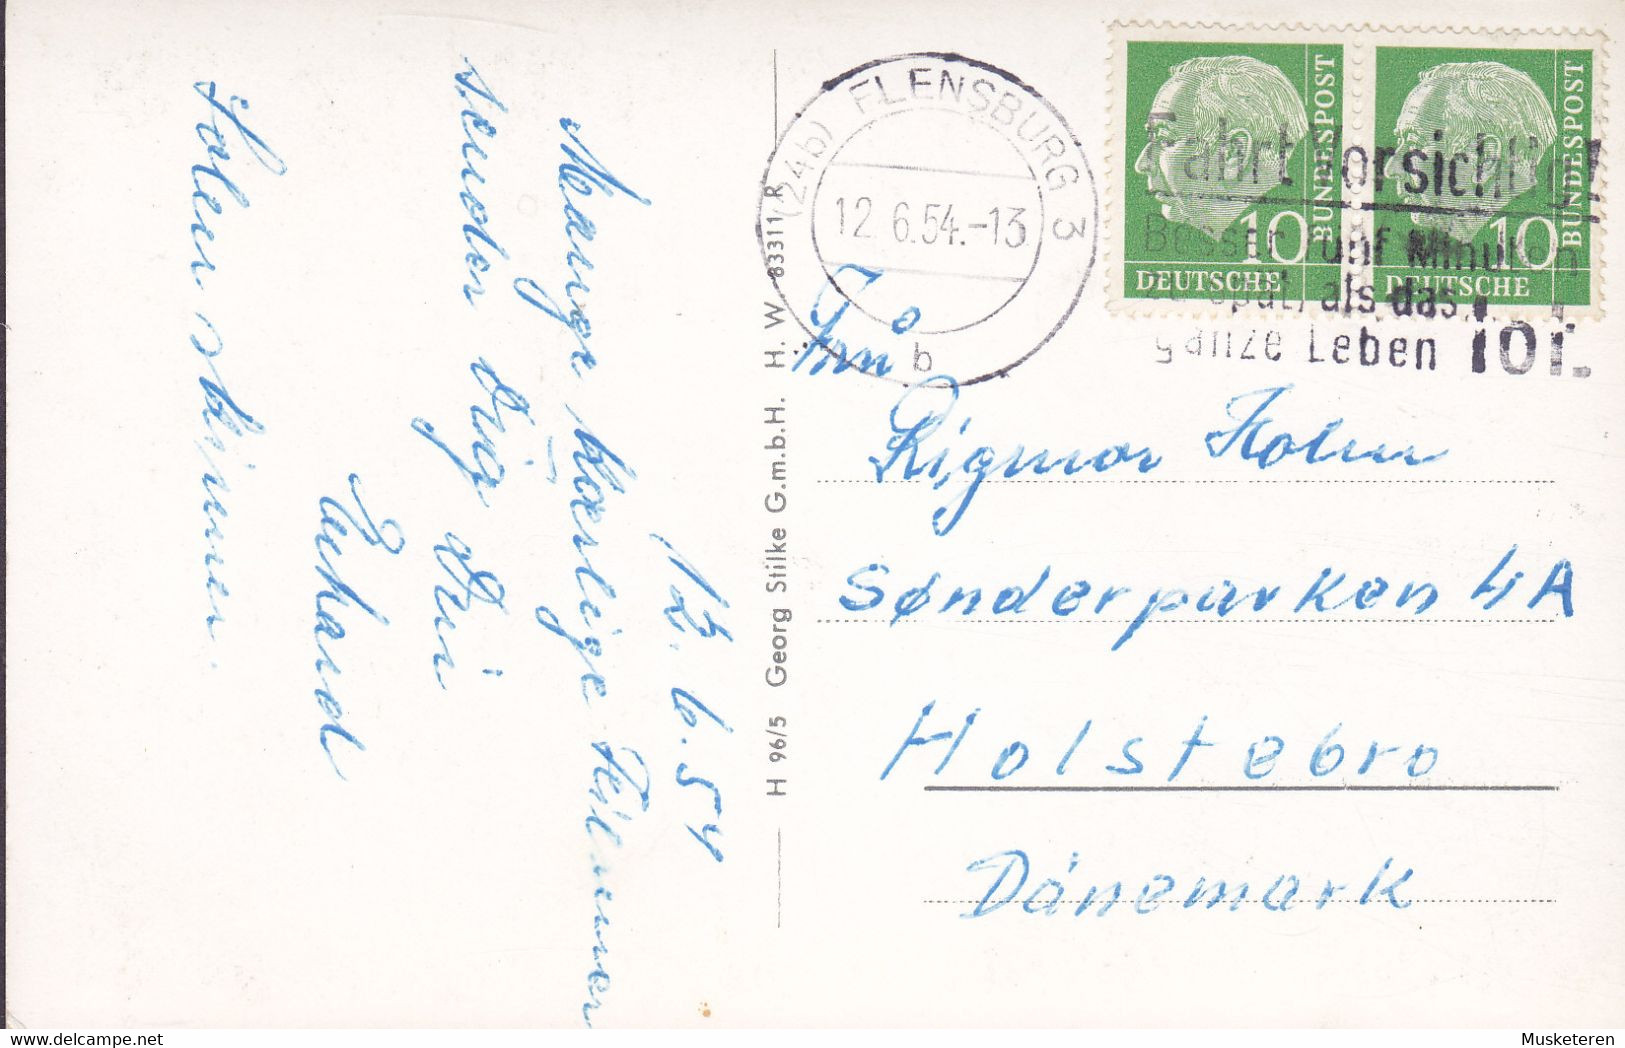 12.6.54
Mange kærlige Hilsener
sender dig din
Erhard
Solen skinner.
H 96/5 Georg Stilke G.m.b.H. H. W. 83311 R
(24b) FLENSBURG 3
12.6.54.-13
b
DEUTSCHE BUNDESPOST 10
DEUTSCHE BUNDESPOST 10
Fahrt Vorsichtig!
Besser fünf Minuten
zu spät, als das
ganze Leben
Rigmor Holm
Sønderparken 4A
Holstebro
Dänemark
Musketeren